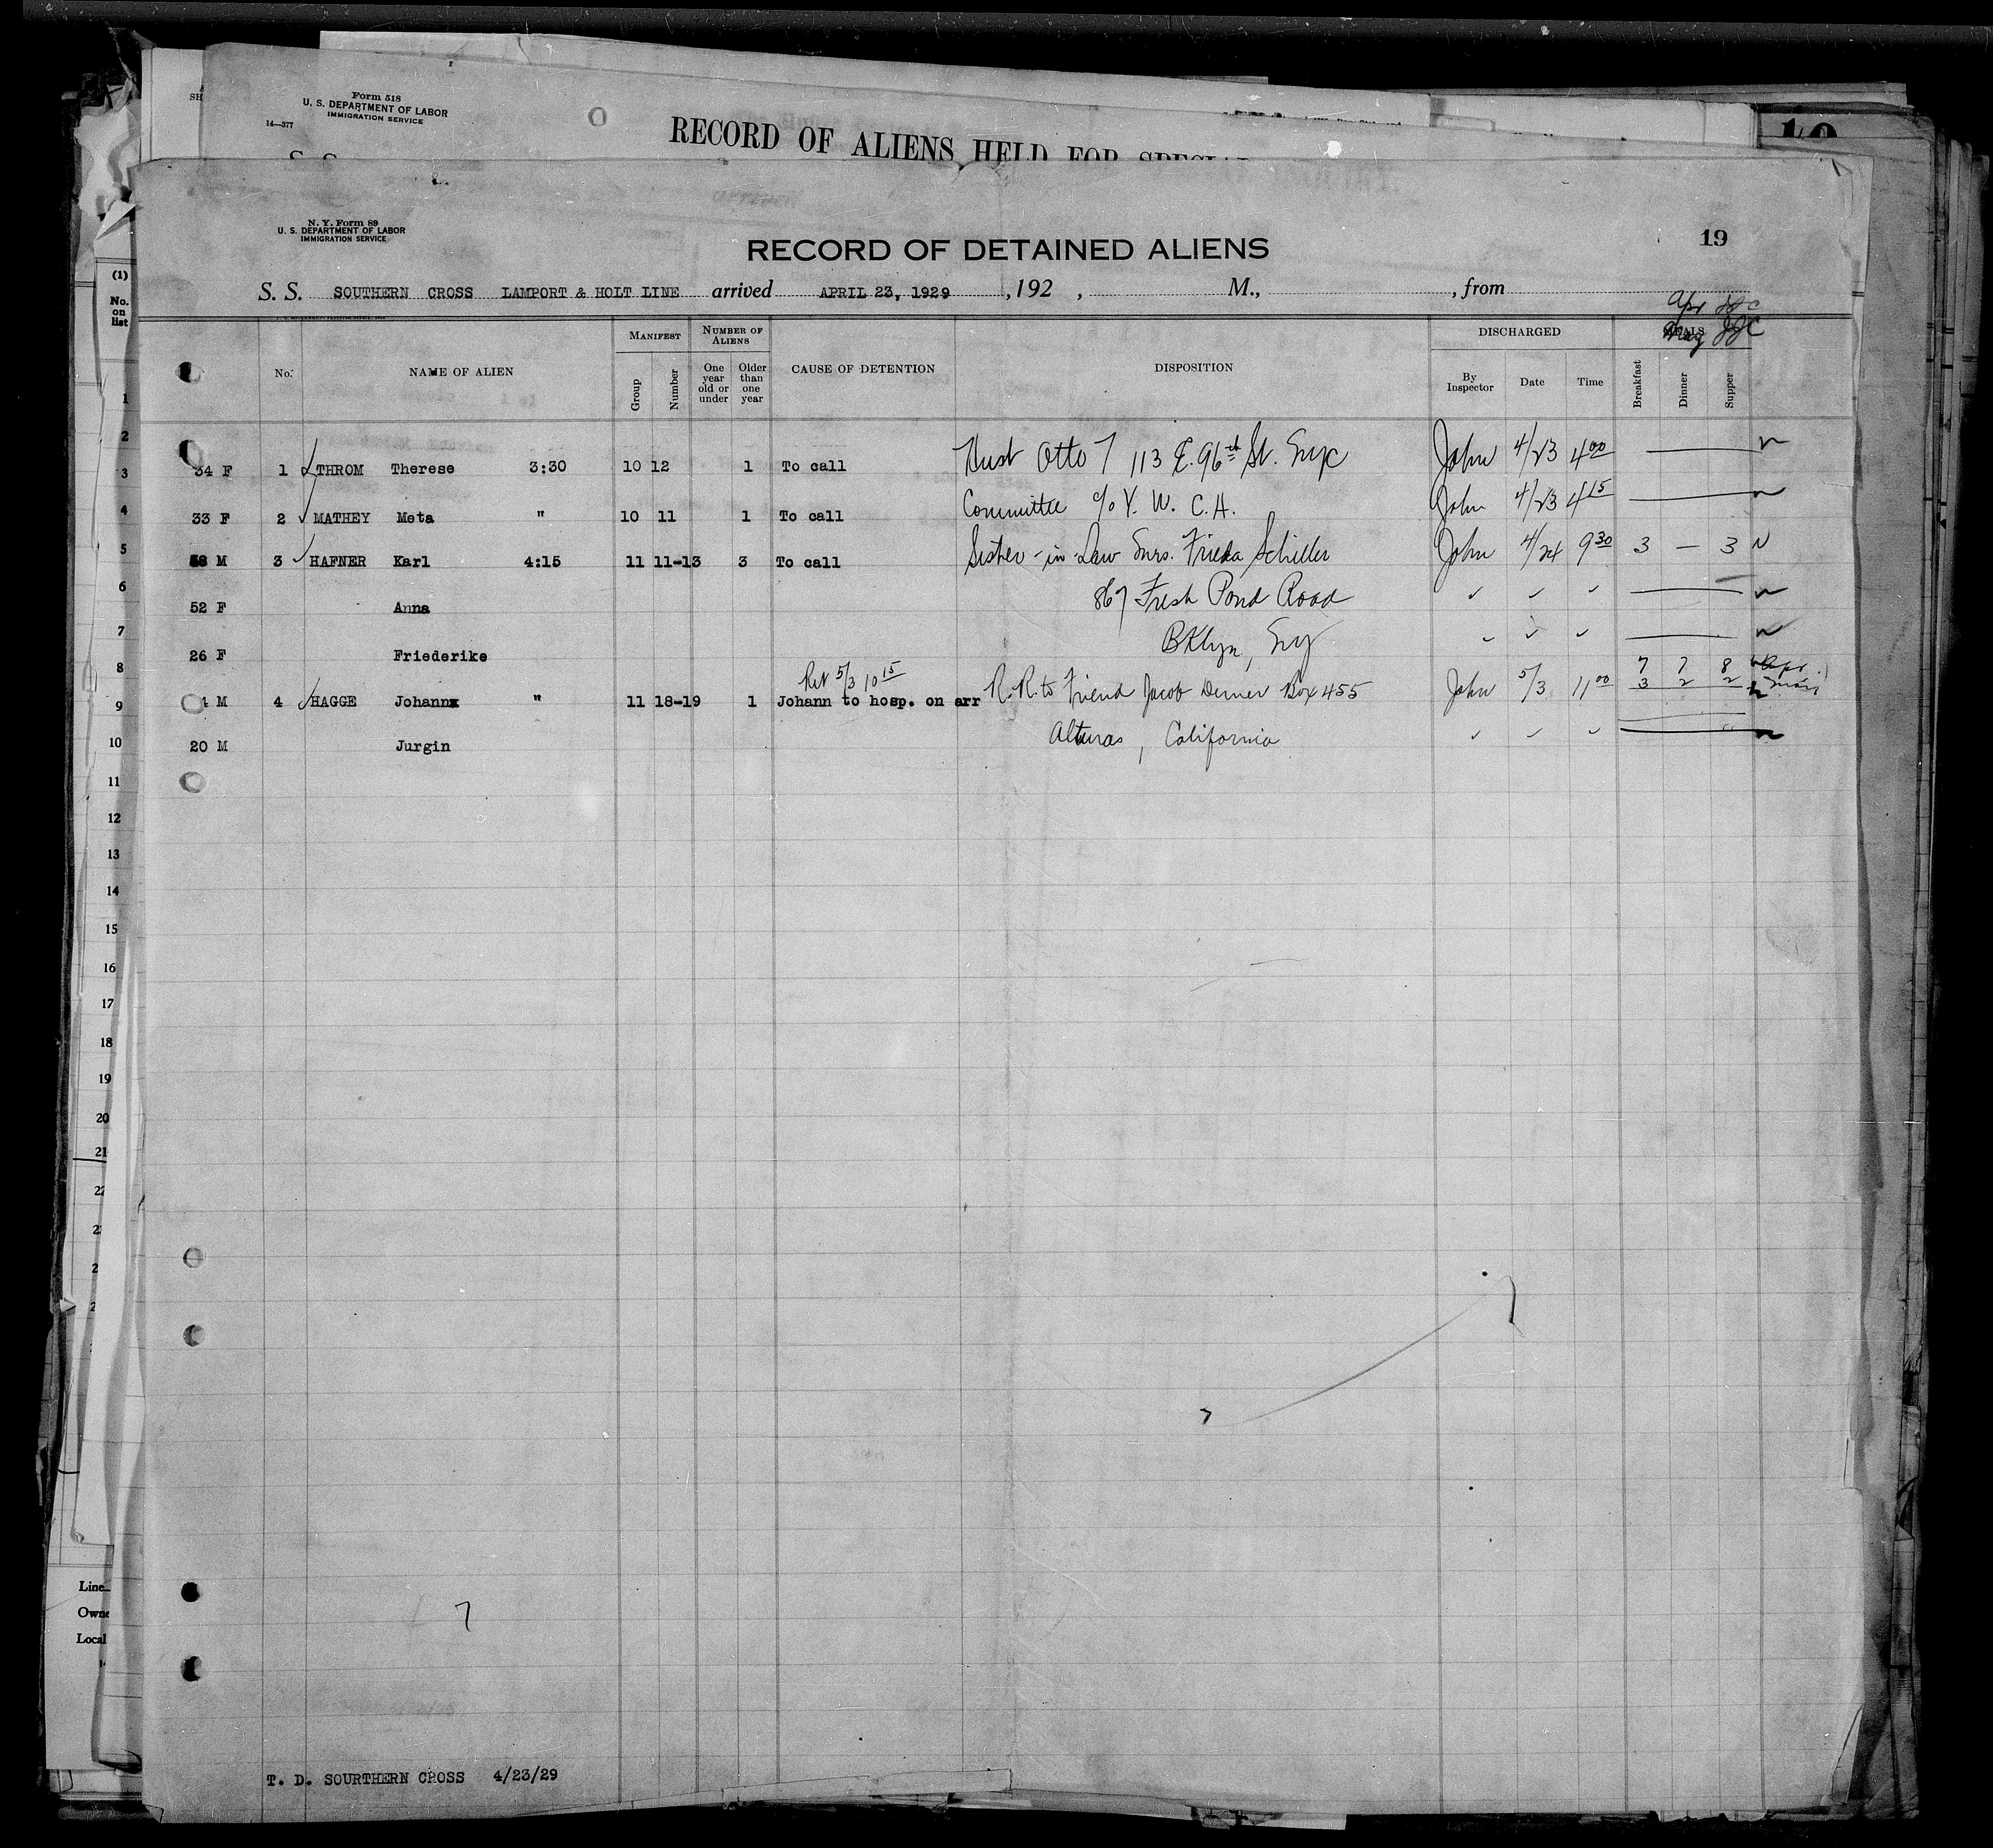 SH
Form 518
U. S. DEPARTMENT OF LABOR
IMMIGRATION SERVICE
14—377
RECORD OF ALIENS HELD FOR SPECIAL
N. Y. Form 89
U. S. DEPARTMENT OF LABOR
IMMIGRATION SERVICE
RECORD OF DETAINED ALIENS
19
S. S. SOUTHERN CROSS LAMPORT & HOLT LINE arrived APRIL 23, 1929 , 192 , M., , from
Apr
May JJC
No. NAME OF ALIEN MANIFEST NUMBER OF ALIENS CAUSE OF DETENTION DISPOSITION DISCHARGED MEALS
Group Number One year old or under Older than one year By Inspector Date Time Breakfast Dinner Supper
34 F 1 THROM Therese 3:30 10 12 1 To call Husb Otto T 113 E. 96th St. Nyc John 4/23 4 00
33 F 2 MATHEY Meta " 10 11 1 To call Committee c/o Y. W. C. A. John 4/23 4 15
58 M 3 HAFNER Karl 4:15 11 11-13 3 To call Sister-in-Law Mrs. Frieda Schiller John 4/24 9 30 3 — 3
52 F Anna 867 Fresh Pond Road
26 F Friederike BKlyn, Ny
Ret 5/3 10 15 7 7 8 Apr.
M 4 HAGGE Johannx " 11 18-19 1 Johann to hosp. on arr R.R. to Friend Jacob Denner Box 455 John 5/3 11 00 3 2 2
20 M Jurgin Alturas, California
(1)
No.
on
list
1
2
3
4
5
6
7
8
9
10
11
12
13
14
15
16
17
18
19
20
21
22
2
2
2
Line
Owne
Local
T. D. SOURTHERN CROSS 4/23/29